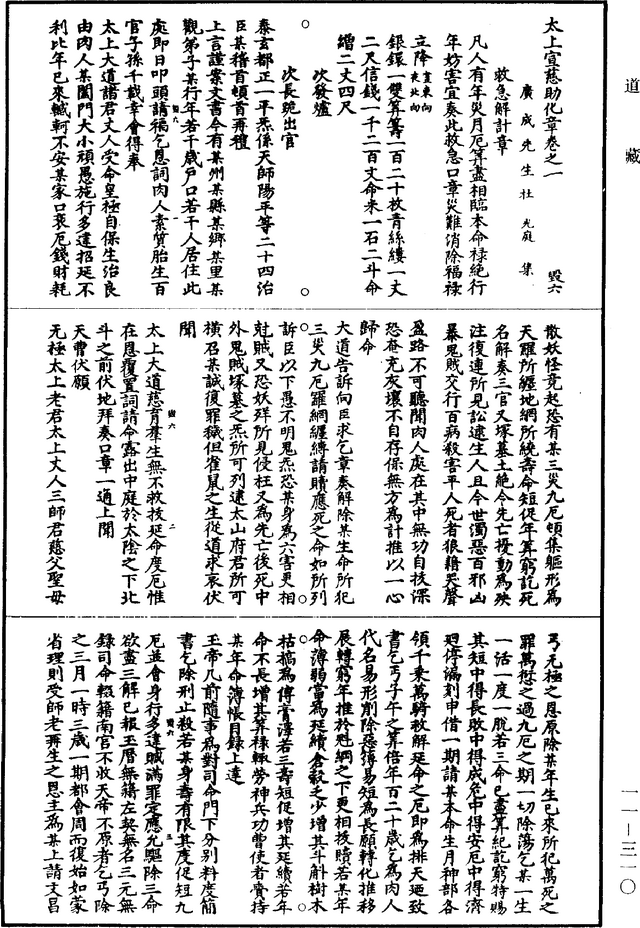 道藏
太上宣慈助化章卷之一 毀六
廣成先生杜光庭集
救急解計章
凡人有年災月厄算盡相臨本命祿絕行
年妨害宜奏此救急口章災難消除福祿
立降宜東向夫北向
銀鐶一雙算籌一百二十枚青絲縷一丈
二尺信錢一千二百文命米一石二斗命
繒二丈四尺
次發爐
次長跪出官
泰玄都正一平炁係天師陽平等二十四治
臣某稽首頓首再禮
上言謹案文書今有某州某縣某鄉某里某
觀弟子某行年若干歲戶口若干人居住此
處即日叩頭請福乞恩詞肉人素質胎生百
官子孫千載幸會得奉
太上大道諸君丈人受命皇極自保生治良
由肉人某闔門大小頑愚施行多違招延不
利比年已來轗軻不安某家口衰厄錢財耗
散妖怪竞起恐有某三災九厄頓集軀形為
天羅所纏地網所繞壽命短促年算窮訖死
名解奏三官又塚墓土絶今先亡擾動為殃
注復連所見訟逮生人且今世濁惡百邪凶
暴鬼賊交行百病殺害平人死者狼籍哭聲
盈路不可聽聞肉人處在其中無功自拔深
恐奄充灰壤不自存保無方為計推以一心
歸命
大道告訴向臣求乞章奏解除某生命所犯
三災九厄羅網纏縛請贖應死之命如所列
訴臣以下愚不明鬼炁恐某身為六害更相
尅賊又恐妖殃所見侵枉又為先亡後死中
外鬼賊塚墓之炁所可列逮太山府君所可
橫召某誠復罪穢但雀鼠之生從道求哀伏
聞
太上大道慈育羣生無不救拔延命度厄惟
在恩覆置詞請命露出中庭於太陰之下北
斗之前伏地拜奏口章一通上聞
天曹伏願
无極太上老君太上丈人三師君慈父聖母
丐无極之恩原除某年生已來所犯萬死之
罪萬愆之過九厄之期一切除蕩乞某一生
一活一度一脫若三命已盡算紀訖窮特賜
其短中得長敗中得成危中得安厄中得濟
迴停漏刻申借一期請某本命生月神部各
領千乘萬騎救解延命之厄即為排天迴致
書乞丐子午之算倍年百二十歲乞為肉人
代名易形削除惡簿易短為長願轉化推移
展轉窮年推於魁綱之下更相拔贖若某年
命薄弱當為延續倉穀乏少增其斗斛樹木
枯槁為傅膏澤若三壽短促增其延續若年
命不長增其算祿輙勞神兵功曹使者賫持
某年命簿帳目録上達
玉帝几前隨事為對司命門下分別料度簡
書乞除刑止殺若某身壽有限其度促短九
厄並會身行多違贓滿罪定應允驅除三命
欲盡三解已報玉曆無籍左契無名三元無
録司命輟籍南宫不收天帝不原者乞丐除
之三月一時三歲一期都會周而復始如蒙
省理則受師老再生之恩主為某上請文昌
一一—三一〇